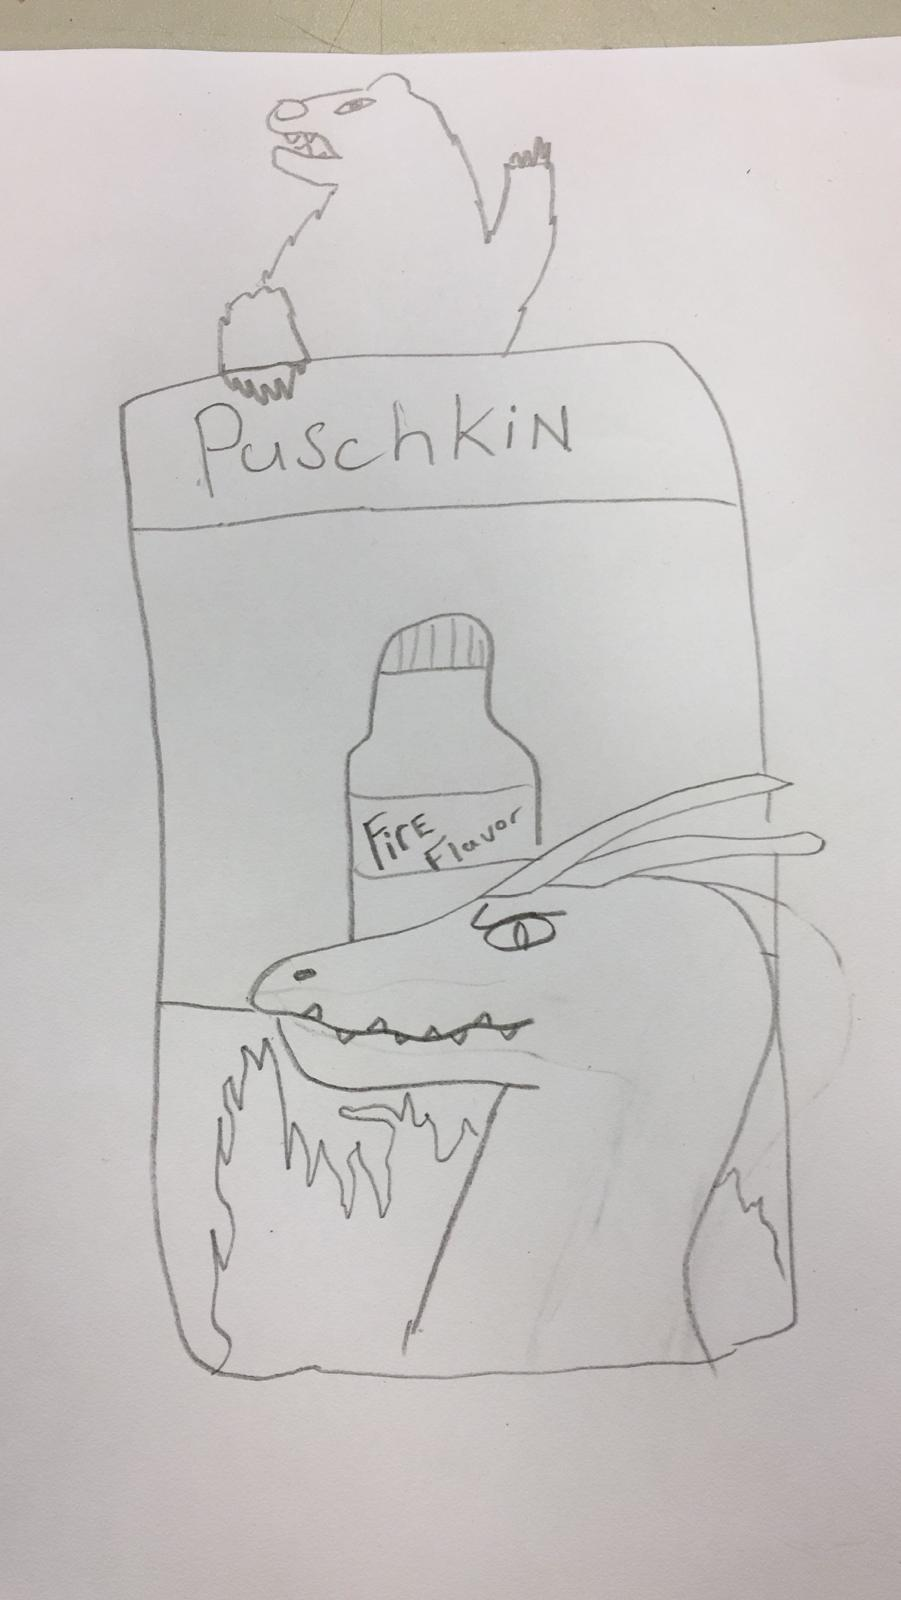 Puschkin
Fire
Flavor